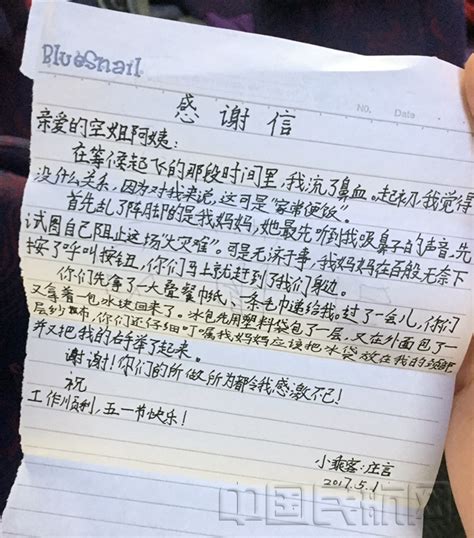 BlueSnail
No. Date
感谢信
亲爱的空姐阿姨：
在等候起飞的那段时间里，我流了鼻血。起初，我觉得
没什么关系，因为对我来说，这可是“家常便饭”。
首先乱了阵脚的是我妈妈，她最先听到我吸鼻子的声音，先
试图自己阻止这场“火灾”。可是无济于事，我妈妈在百般无奈下
按了呼叫按钮，你们马上就赶到了我们身边。
你们先拿了一大叠餐巾纸、一条毛巾递给我。过了一会儿，你们
又拿着一包冰块回来了。冰包先用塑料袋包了一层，又在外面包了一
层纱布，你们还仔细叮嘱我妈妈应该把冰袋放在我的
并又把我的右手举了起来。
谢谢！你们的所做所为都令我感激不已！
祝
工作顺利，五一节快乐！
小乘客：庄言
2017.5.1
中国民航网